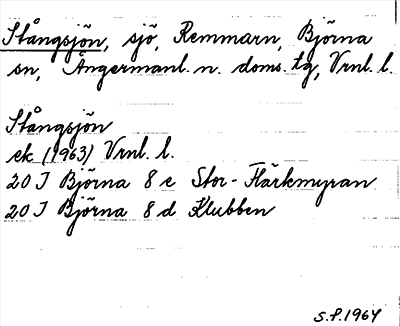 Stångsjön, sjö, Remmarn, Björna
sn, Ångermanl. n. doms. tg, Vrnl. l.
Stångsjön
ek (1963) Vrnl. l.
20 I Björna 8 e Stor-Flärkmyran
20 I Björna 8 d Klubben
S.P. 1964